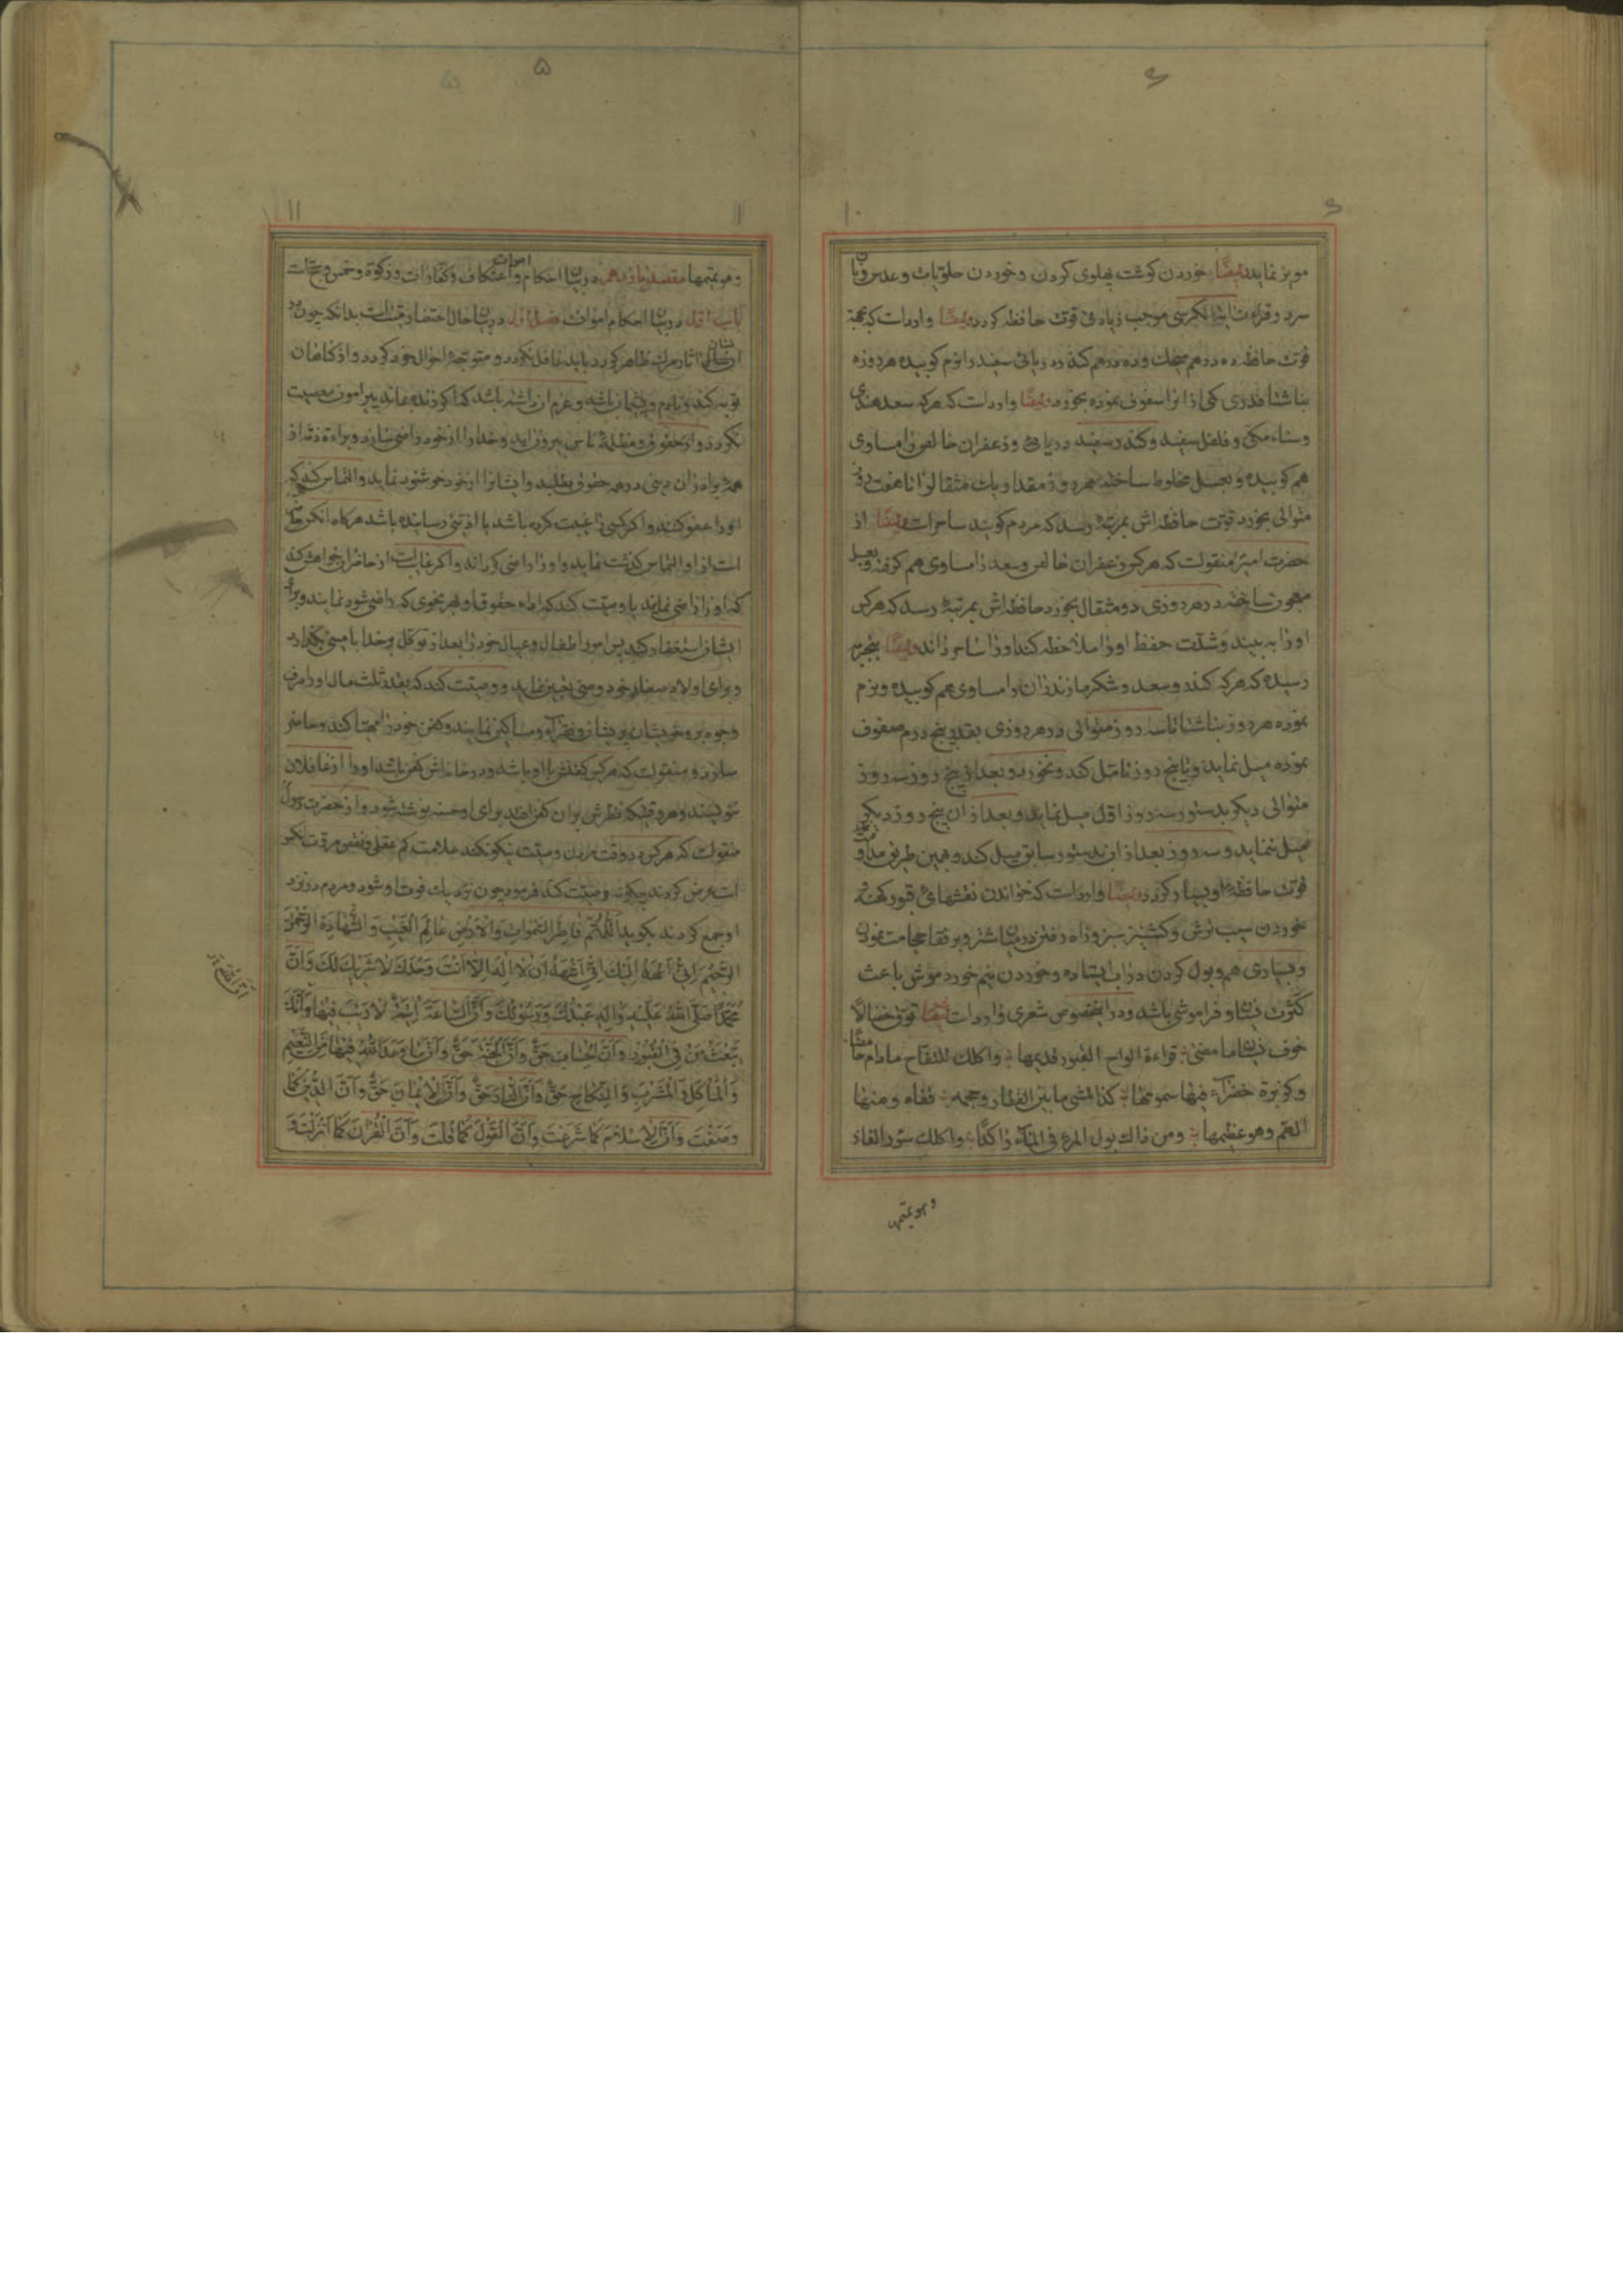 ۶
۱۰
مویز نماید ایضًا خوردن کوشت پهلوی کردن و خوردن حلویات و عدس و نان
سرد و قراءت ایة الکرسی موجب زیادتی قوت حافظه کردد ایضًا وارداست که بجهة
قوت حافظه ده درهم و ده درهم کندر دریائی سفید را نرم کوبیده هر روزه
بناشتا قدری کمی ازانرا سفوف نموده بخورد ایضًا وارداست که هرکه سعد هندی
وسناء مکی و فلفل سفید و کندر سفید دریائی و زعفران خالص را مساوی
هم کوبیده و بعسل مخلوط ساخته هر روز مقدار یک مثقال ازانا هفت روز
متوالی بخورد قوت حافظه اش بمرتبۀ رسد که مردم کویند ساحراست ایضًا از
حضرت امیر منقولست که هرکس زعفران خالص و سعد را مساوی هم کرفته و بعسل
معجون ساخته در هر روزی دو مثقال بخورد حافظه اش بمرتبۀ رسد که هرکس
اورا به بیند و شدّت حفظ اورا ملاحظه کند اورا ساحر داند ایضًا بتجربه
رسیده که هرکه کندر و سعد و شکر مازندران را مساوی هم کوبیده و نرم
نموده هر روز بناشتا تا سه روز متوالی در هر روزی بقدر پنج درم سفوف
نموده میل نماید و تا پنج روز تامّل کند و نخورد و بعد از پنج روز سه روز
متوالی دیکر بدستور سه روز اول میل نماید و بعد از ان پنج روز دیکر
میل ننماید و سه روز بعد از ان بدستور سابق میل کند و بهمین طریق
قوت حافظۀ او بسیار کردد ایضًا وارداست که خواندن نقشهای قبور کهنه و
خوردن سیب ترش و کشنیز سبز و راه رفتن در میان شتر و بر قفا حجامت نمودن
و بسیاری هم و بول کردن در اب ایستاده و خوردن نیم خورد موش باعث
کثرت نسیان و فراموشی باشد و در اینخصوص شعری وارداست ایضًا توق خصالًا
خوف نسیان ما مضی قراءة الواح القبور قدیمها و اکلک للتفّاح مادام حامضًا
و کزبرة خضرآء فیها سمومها کذا المشی مابین القطار و حجمه قفاه و منها
الهم و هو عظیمها و من ذالک بول المرء فی المآء راکدًا و اکلک سؤر الفار
وهو یتمها
۵
۱۱
وهو یتمها مقصد یازدهم در بیان احکام اموات و اعتکاف و کفارات و زکوة و خمس و
باب اول در بیان احکام اموات فصل اول در بیان حال احتضار بدانکه چون
اثار مرک ظاهر کردد باید غافل نکردد و متوجه احوال خود کردد و از کناهان
توبه کند و نادم و پشیمان باشد و عزم ان داشته باشد که اکر زنده بماند پیرامون معصیت
نکردد و از حقوق و مظلمۀ ناس بیرون اید و خدا را از خود راضی سازد و براءة ذمه از
همۀ برادران دینی در همه حقوق بطلبد و ایشانرا از خود خوشنود نماید و التماس کند که
اورا عفو کنند و اکر کسی را غیبت کرده باشد یا اذیتی رسانیده باشد هرکاه انکس حاضر
است از او التماس کذشت نماید و اورا راضی کرداند و اکر غایب است از حاضران خواهش کند
که اورا راضی نمایند یا وصیت کند که اداء حقوق او بهر نحوی که راضی شود نمایند و برای
ایشان استغفار کند پس امور اطفال و عیال خود را بعد از توکل بر خدا با وصی بکذارد
و برای اولاد صغار خود وصی تعیین نماید و وصیت کند که بقدر ثلث مال اورا صرف
وجوه بر و خویشان پریشان و فقرآء و مساکین نمایند و کفن خود را مهیا کند و حاضر
سازد و منقولست که هرکس کفنش با او باشد و در خانه اش کفن باشد اورا از غافلان
ننویسند و هر وقتیکه نظرش بران کفن افتد برای او حسنه نوشته شود و از حضرت رسول
منقولست که هرکس در وقت مردن وصیت نیکو نکند علامت کم عقلی و نقص مروت انکس
است عرض کردند چکونه وصیت کند فرمود چون نزدیک فوت او شود و مردم در نزد
او جمع کردند بکوید اللّٰهُمَّ فَاطِرَ السَّمٰوَاتِ وَالْاَرْضِ عَالِمَ الْغَیْبِ وَالشَّهَادَةِ الرَّحْمٰنَ
الرَّحِیْمَ اِنّی اَعْهَدُ اِلَیْکَ اِنّی اَشْهَدُ اَنْ لَا اِلٰهَ اِلَّا اَنْتَ وَحْدَکَ لَا شَرِیْکَ لَکَ وَاَنَّ
مُحَمَّدًا صَلَّی اللّٰهُ عَلَیْهِ وَاٰلِهِ عَبْدُکَ وَرَسُوْلُکَ وَاَنَّ السَّاعَةَ اٰتِیَةٌ لَا رَیْبَ فِیْهَا وَاَنَّکَ
تَبْعَثُ مَنْ فِی الْقُبُوْرِ وَاَنَّ الْحِسَابَ حَقٌّ وَاَنَّ الْجَنَّةَ حَقٌّ وَاَنَّ مَا وَعَدَ اللّٰهُ فِیْهَا مِنَ النَّعِیْمِ
وَالْمَاْکَلِ وَالْمَشْرَبِ وَالنِّکَاحِ حَقٌّ وَاَنَّ النَّارَ حَقٌّ وَاَنَّ الْاِیْمَانَ حَقٌّ وَاَنَّ الدِّیْنَ کَمَا
وَصَفْتَ وَاَنَّ الْاِسْلَامَ کَمَا شَرَعْتَ وَاَنَّ الْقَوْلَ کَمَا قُلْتَ وَاَنَّ الْقُرْاٰنَ کَمَا اَنْزَلْتَ وَ